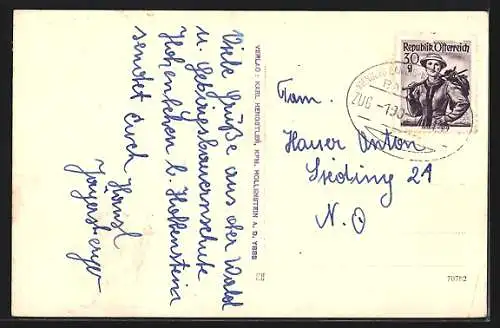 Viele Grüße aus der Wald
u. Gebirgsbauernschule
Hohenlehen b. Hollenstein
sendet Euch Hansl
Jagersberger
VERLAG: KARL HENGSTLER, KFM. HOLLENSTEIN A. D. YBBS
Fam.
Hauer Anton
Sieding 24
N.O
Republik Österreich
30
g
ZUG
70762